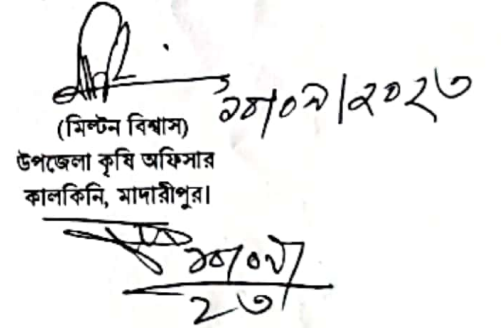 ১০/০৯/২০২৩
(মিল্টন বিশ্বাস)
উপজেলা কৃষি অফিসার
কালকিনি, মাদারীপুর।
১০/০৯/
২৩